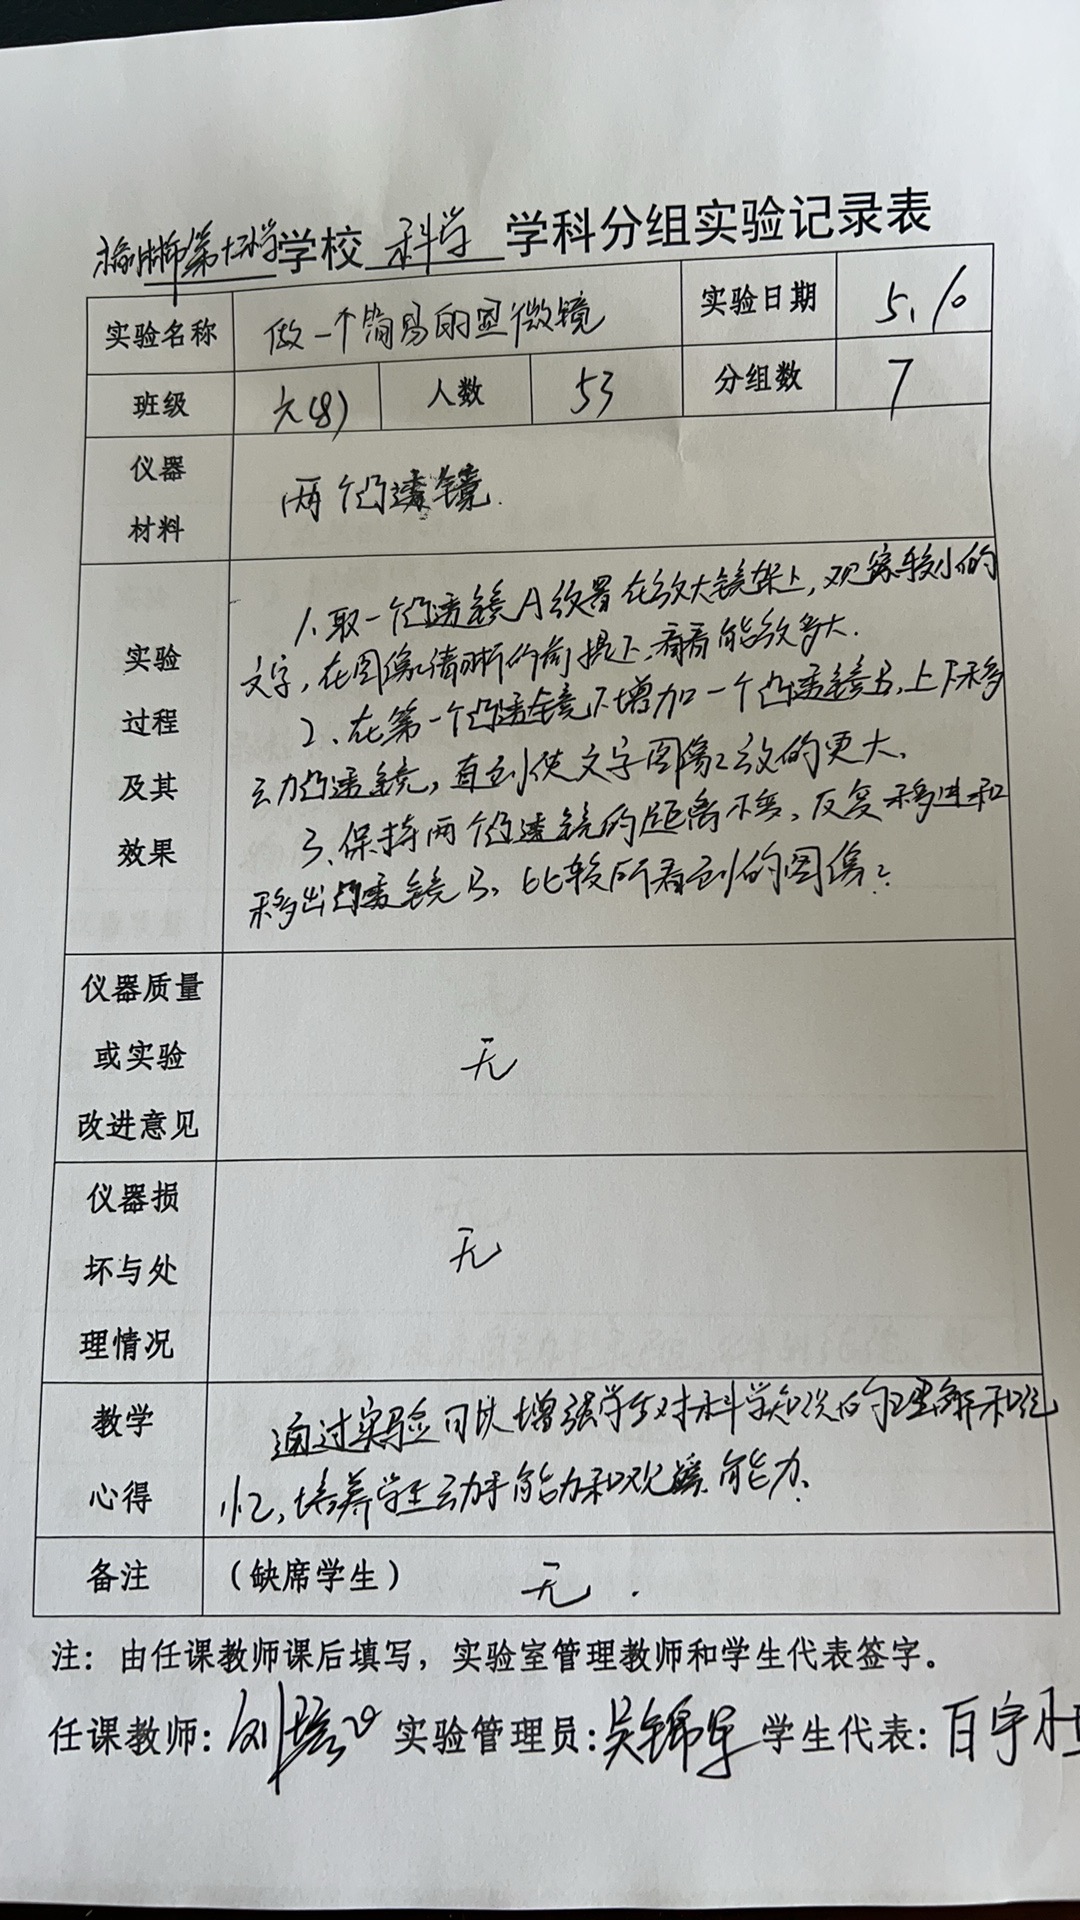 第十小学学校 科学 学科分组实验记录表
实验名称 做一个简易的显微镜 实验日期 5.10
班级 六(8) 人数 53 分组数 7
仪器
材料
两个凸透镜.
实验
过程
及其
效果
1、取一个凸透镜A放置在放大镜架上,观察较小的
文字,在图像清晰的前提下,看看能放多大.
2、在第一个凸透镜下增加一个凸透镜B,上下移
动凸透镜,直到使文字图像放的更大、
3、保持两个凸透镜的距离不变,反复移进和
移出凸透镜B,比较所看到的图像?
仪器质量
或实验
改进意见
无
仪器损
坏与处
理情况
无
教学
心得
通过实验可以增强学生对科学知识的理解和记
忆,培养学生动手能力和观察能力.
备注 (缺席学生) 无.
注:由任课教师课后填写,实验室管理教师和学生代表签字。
任课教师: 刘 实验管理员:吴锦军 学生代表: 百宇